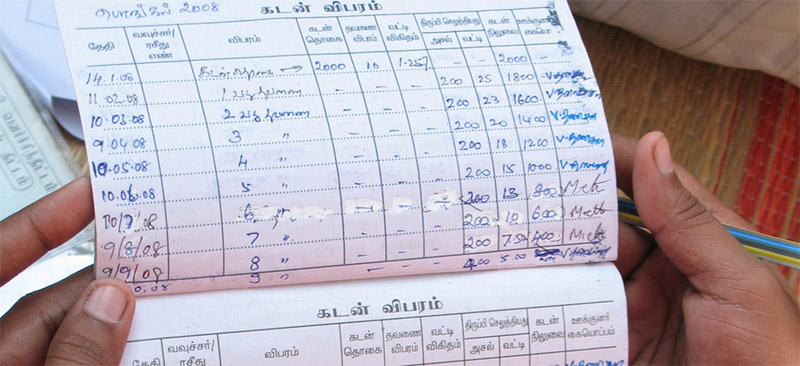 பொங்கல் 2008 கடன் விபரம்
தேதி வவுச்சர்/ ரசீது எண் விபரம் கடன் தொகை தவணை விபரம் வட்டி விகிதம் திருப்பி செலுத்தியது அசல் வட்டி கடன் நிலுவை ஊக்குனர்
14.1.08 கடன் தொகை → 2000 10 1.25% 2000
11.02.08 1 வது தவணை - - - 200 25 1800
10.03.08 2 வது தவணை - - - 200 23 1600
9.04.08 3 " - - - 200 20 1400
10.05.08 4 " - - - 200 18 1200
10.06.08 5 " - - - 200 15 1000
10/7/08 6 " - - - 200 13 800
9/8/08 7 " - - - 200 10 600
9/9/08 8 " - - - 200 7.50 400
9 " - - 5.00
கடன் விபரம்
தேதி வவுச்சர்/ ரசீது விபரம் கடன் தொகை தவணை விபரம் வட்டி விகிதம் திருப்பி செலுத்தியது அசல் வட்டி கடன் நிலுவை ஊக்குனர் கையொப்பம்